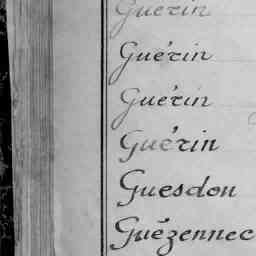 Guérin
Guérin
Guérin
Guérin
Guesdon
Guézennec